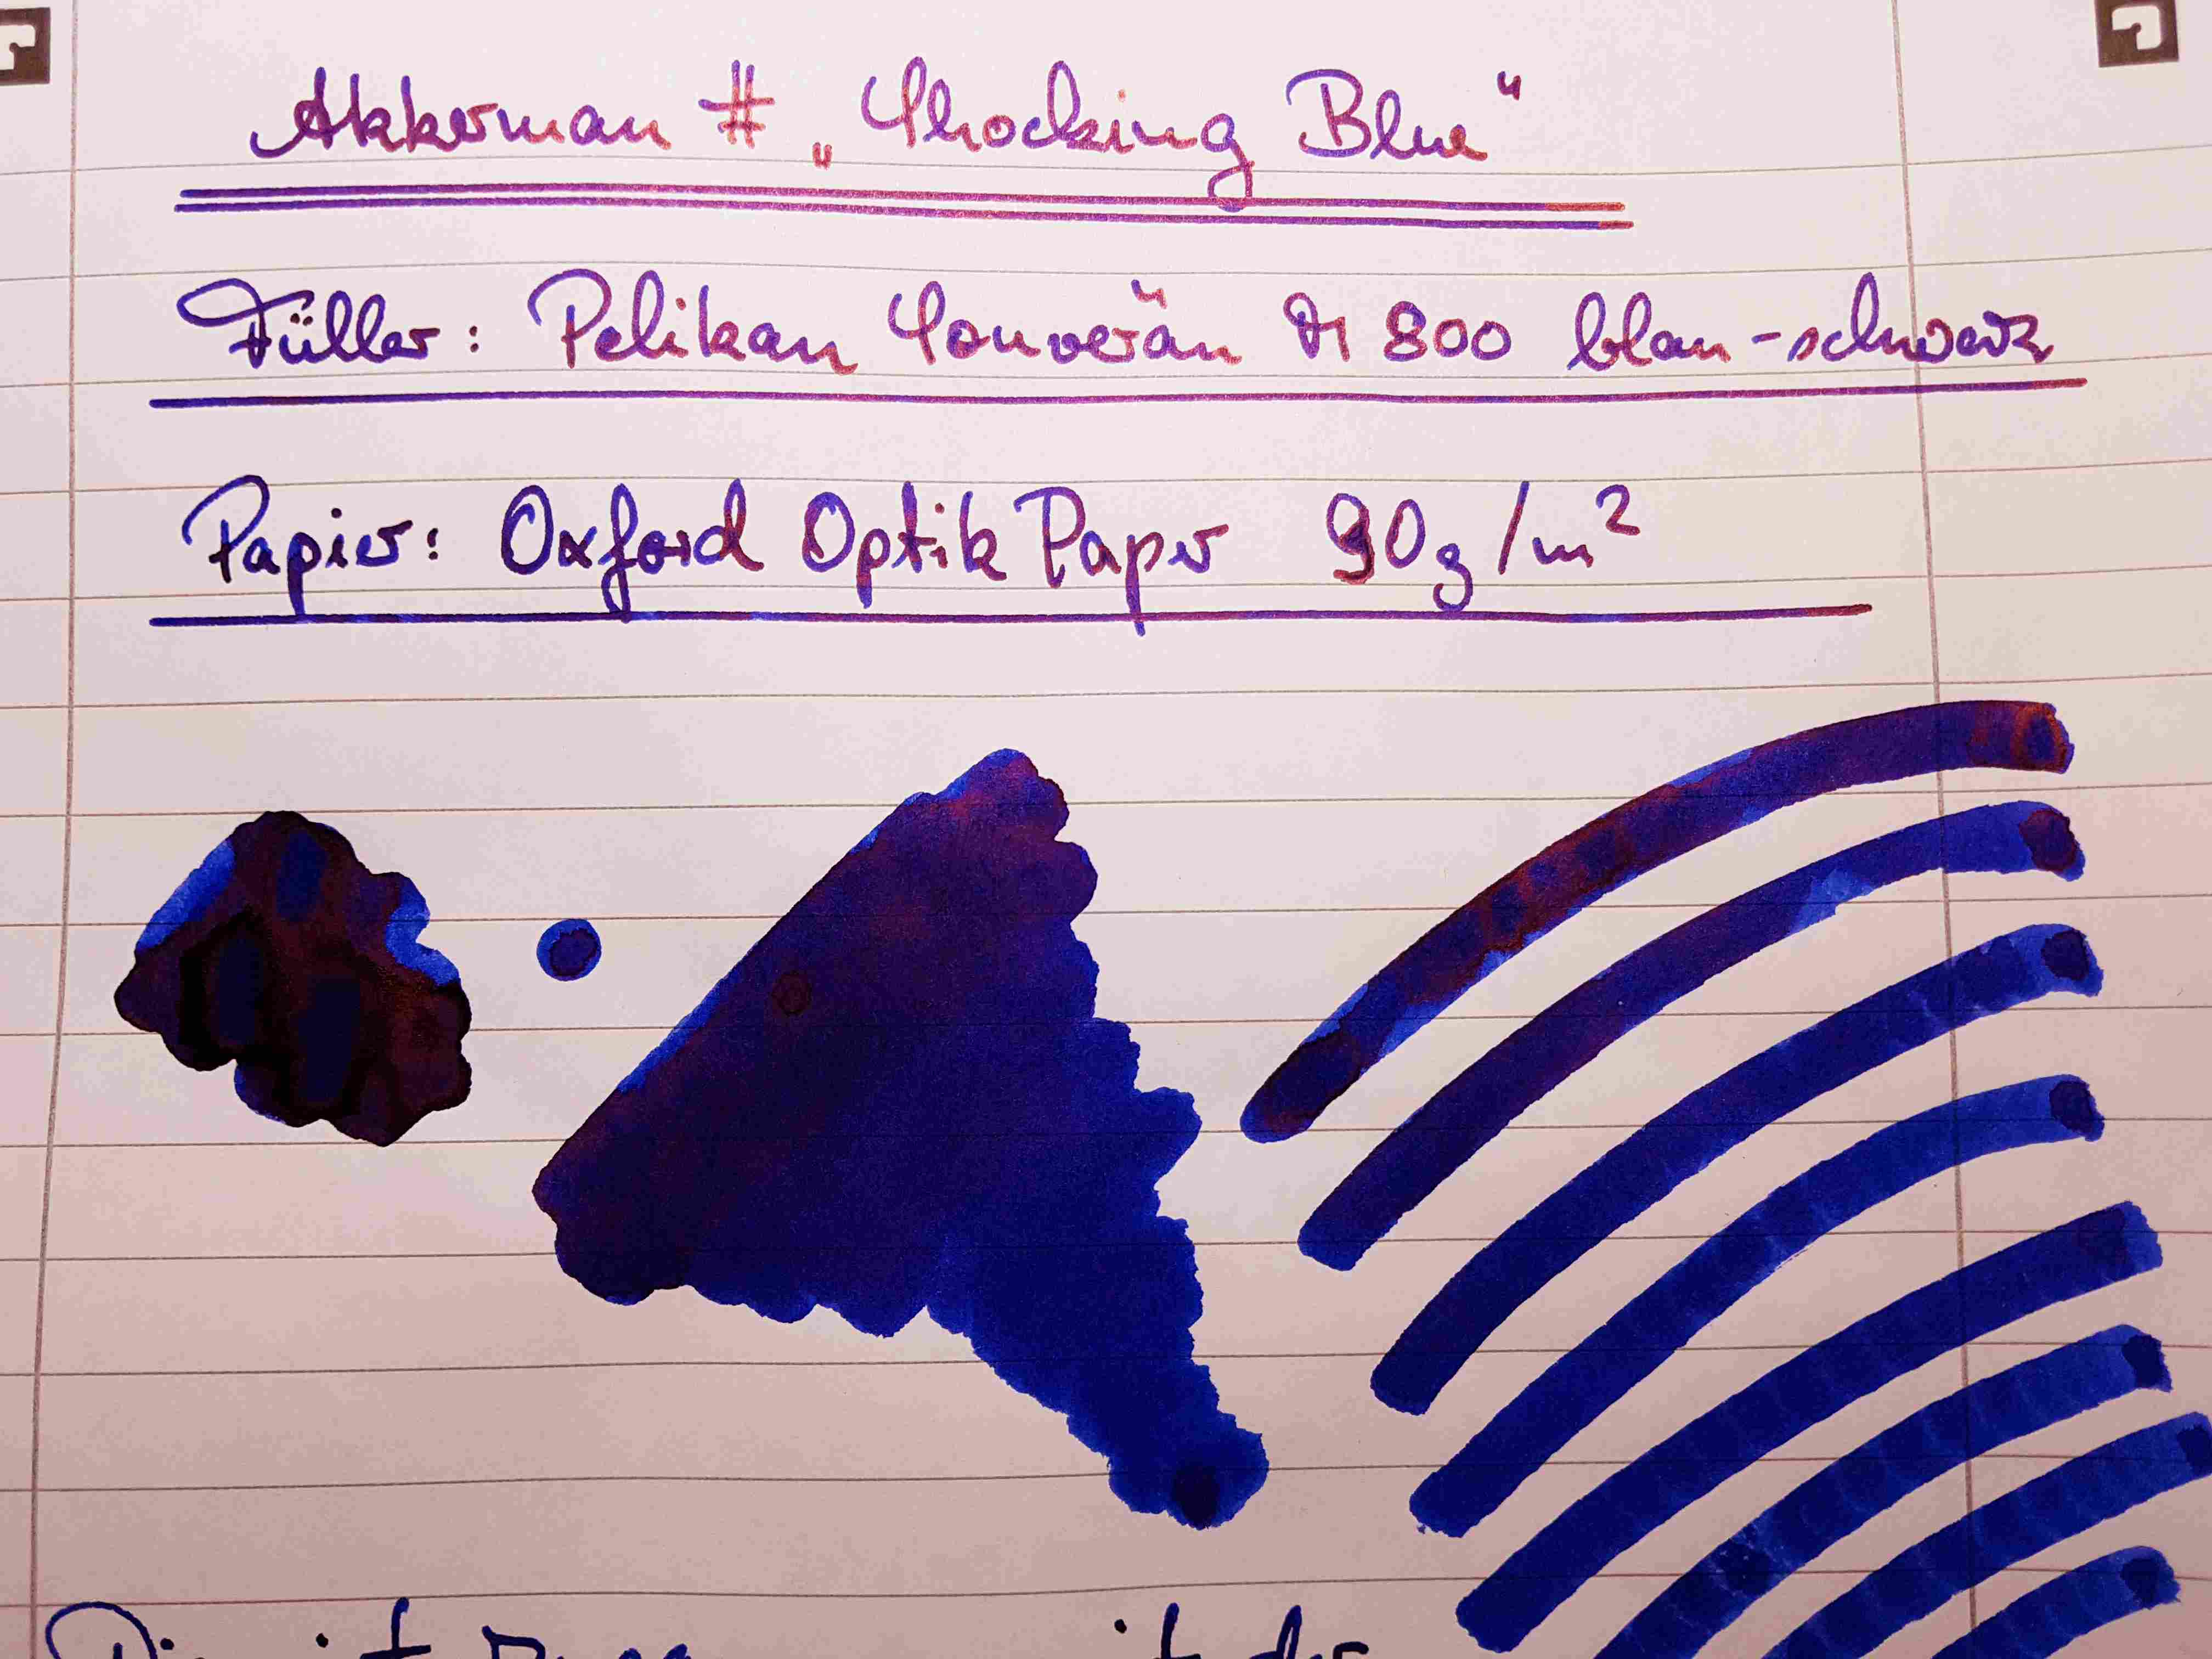 Akkerman # „Shocking Blue"
Füller: Pelikan Souverän M 800 blau-schwarz
Papier: Oxford Optik Paper 90g/m²